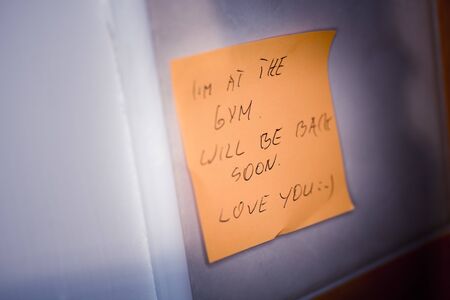 I'M AT THE
GYM.
WILL BE BACK
SOON.
LOVE YOU :-)